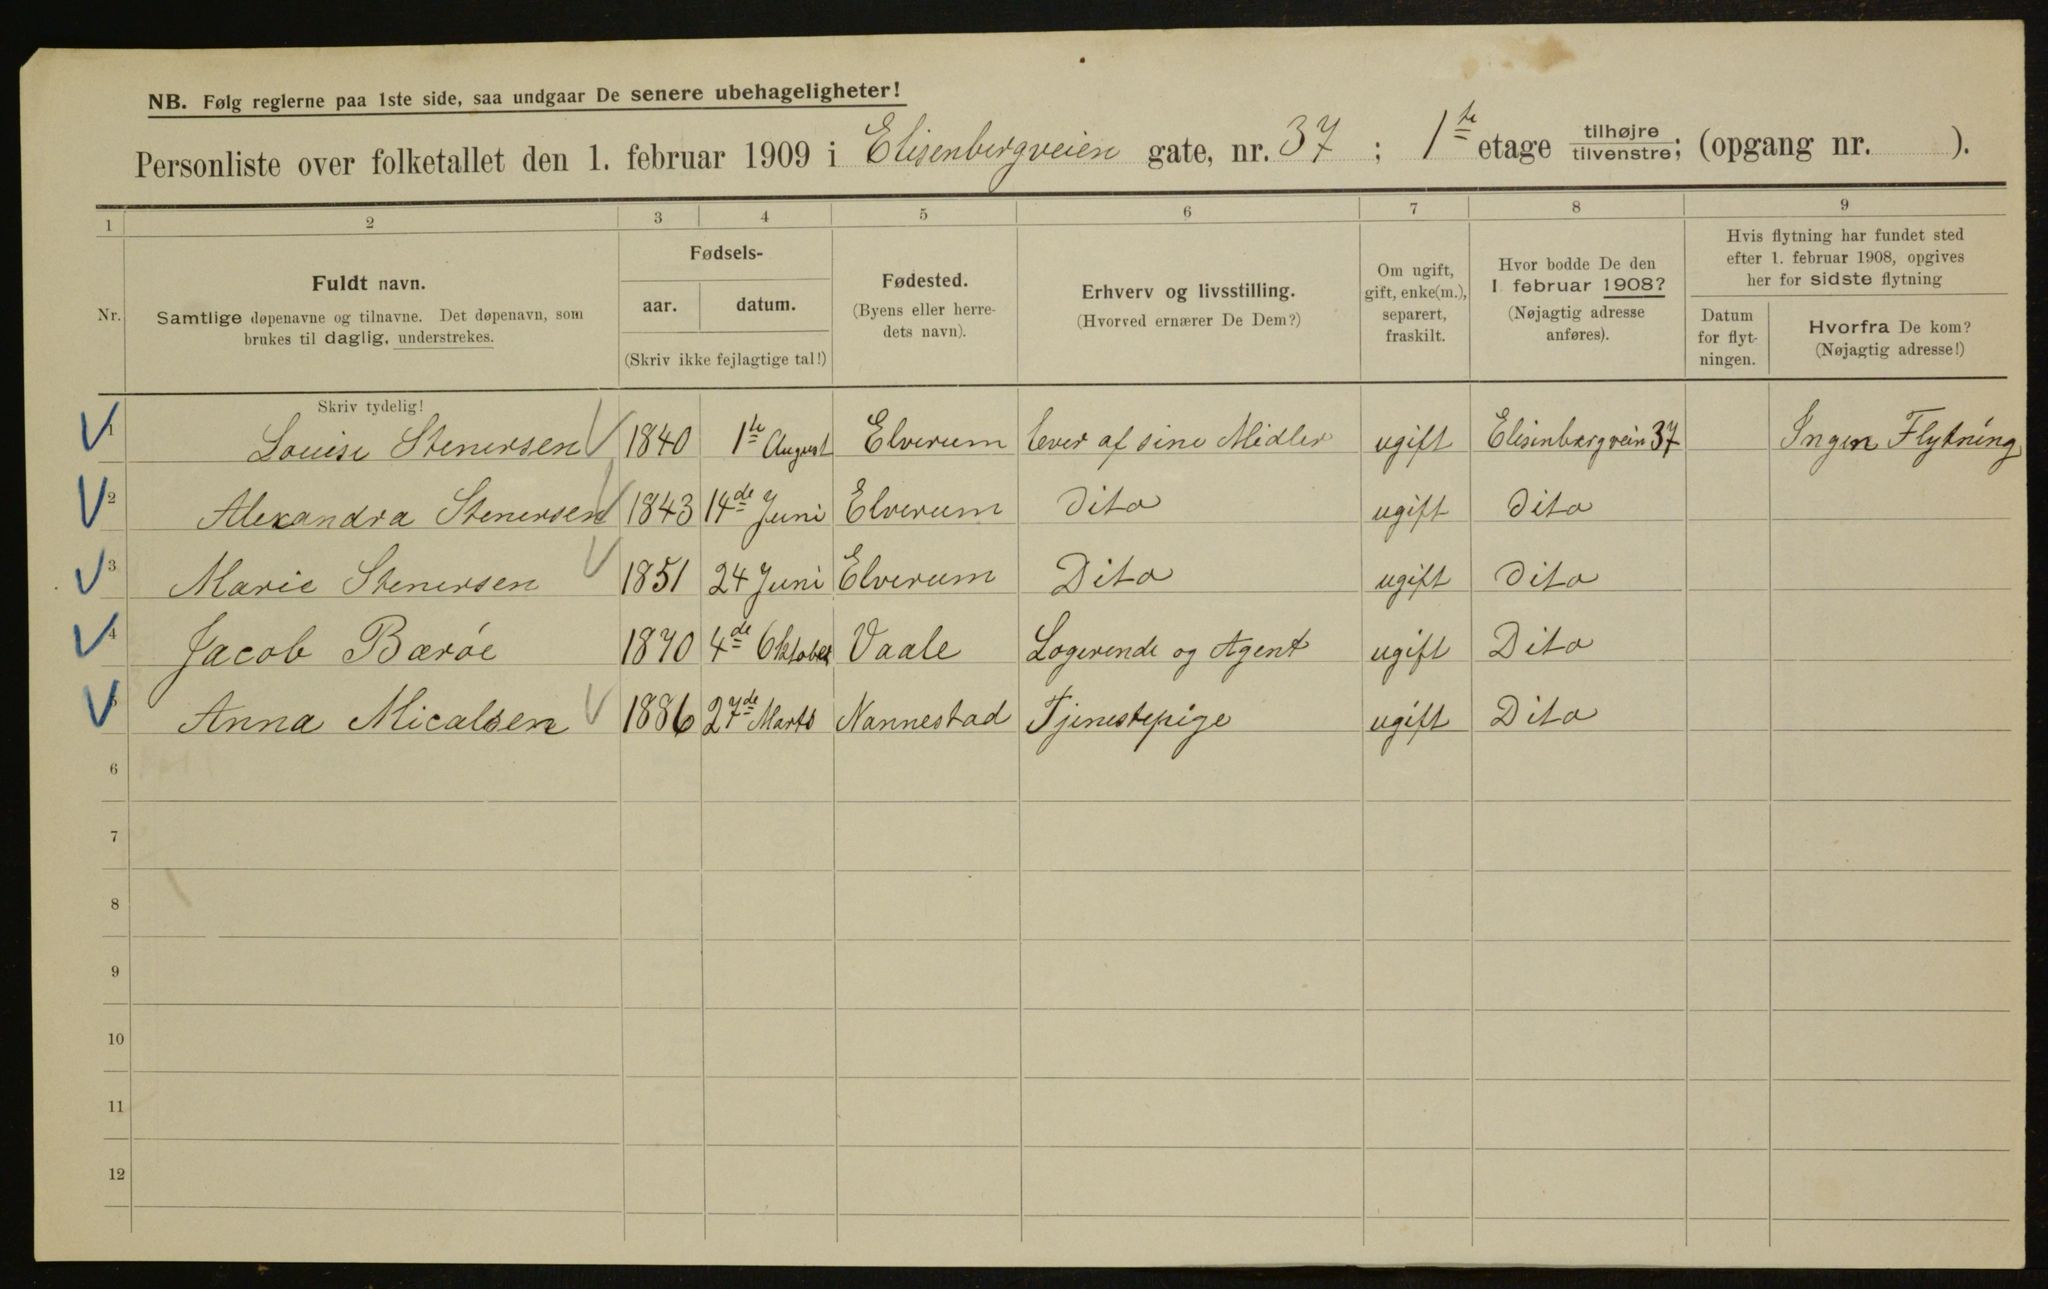 NB. Følg reglerne paa 1ste side, saa undgaar De senere ubehageligheter!
Personliste over folketallet den 1. februar 1909 i Elisenbergveien gate, nr. 37 ; 1ste etage tilhøjre tilvenstre; (opgang nr. ).
1 2 3 4 5 6 7 8 9
Nr.
Fuldt navn.
Samtlige døpenavne og tilnavne. Det døpenavn, som
brukes til daglig, understrekes.
Fødsels-
aar. datum.
(Skriv ikke fejlagtige tal!)
Fødested.
(Byens eller herre-
dets navn).
Erhverv og livsstilling.
(Hvorved ernærer De Dem?)
Om ugift,
gift, enke(m.),
separert,
fraskilt.
Hvor bodde De den
1 februar 1908?
(Nøjagtig adresse
anføres).
Hvis flytning har fundet sted
efter 1. februar 1908, opgives
her for sidste flytning
Datum
for flyt-
ningen.
Hvorfra De kom?
(Nøjagtig adresse!)
Skriv tydelig!
1 Louise Stenersen 1840 1ste August Elverum lever af sine Midler ugift Elisinbærgvein 37 Ingen Flytning
2 Alexandra Stenersen 1843 14de Juni Elverum Dito ugift Dito
3 Marie Stenersen 1851 24 Juni Elverum Dito ugift Dito
4 Jacob Barøe 1870 4de Oktober Vaale Logerende og Agent ugift Dito
5 Anna Micalsen 1886 27de Marts Nannestad Tjenestepige ugift Dito
6
7
8
9
10
11
12